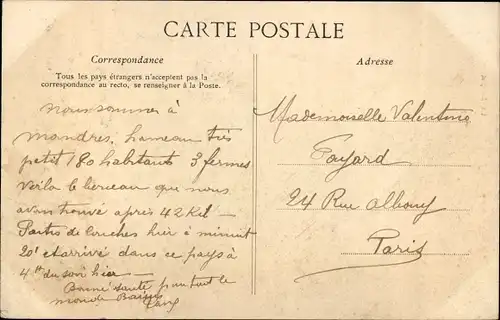 CARTE POSTALE
Correspondance
Tous les pays étrangers n'acceptent pas la
correspondance au recto, se renseigner à la Poste.
nous sommes à
Mandres, hameau très
petit 180 habitants 3 fermes
voila le berceau que nous
avons trouvé après 42 Kil
Partis de Conches hier à minuit
20' et arrivé dans ce pays à
4 du soir hier
Bonne santé pour tout le
monde Baisers
Adresse
Mademoiselle Valentine
Fayard
24 Rue Albouy
Paris